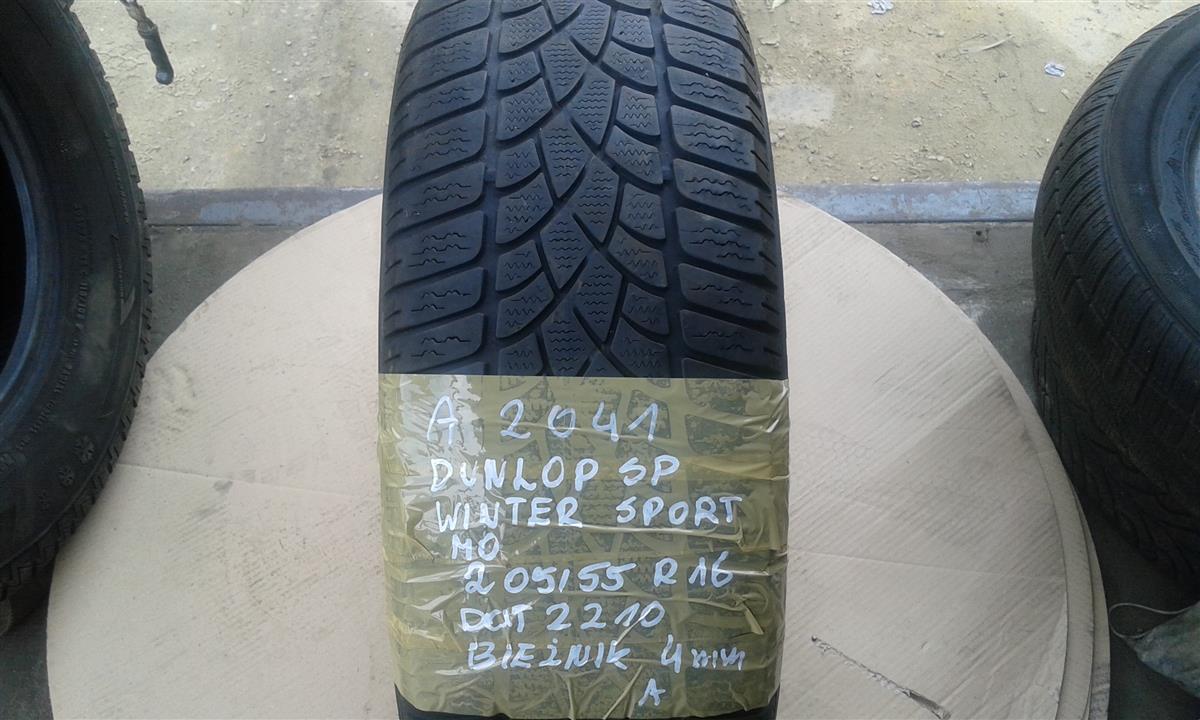 A 2041
DUNLOP SP
WINTER SPORT
MO
205/55 R16
DOT 2210
BIEŻNIK 4mm
A